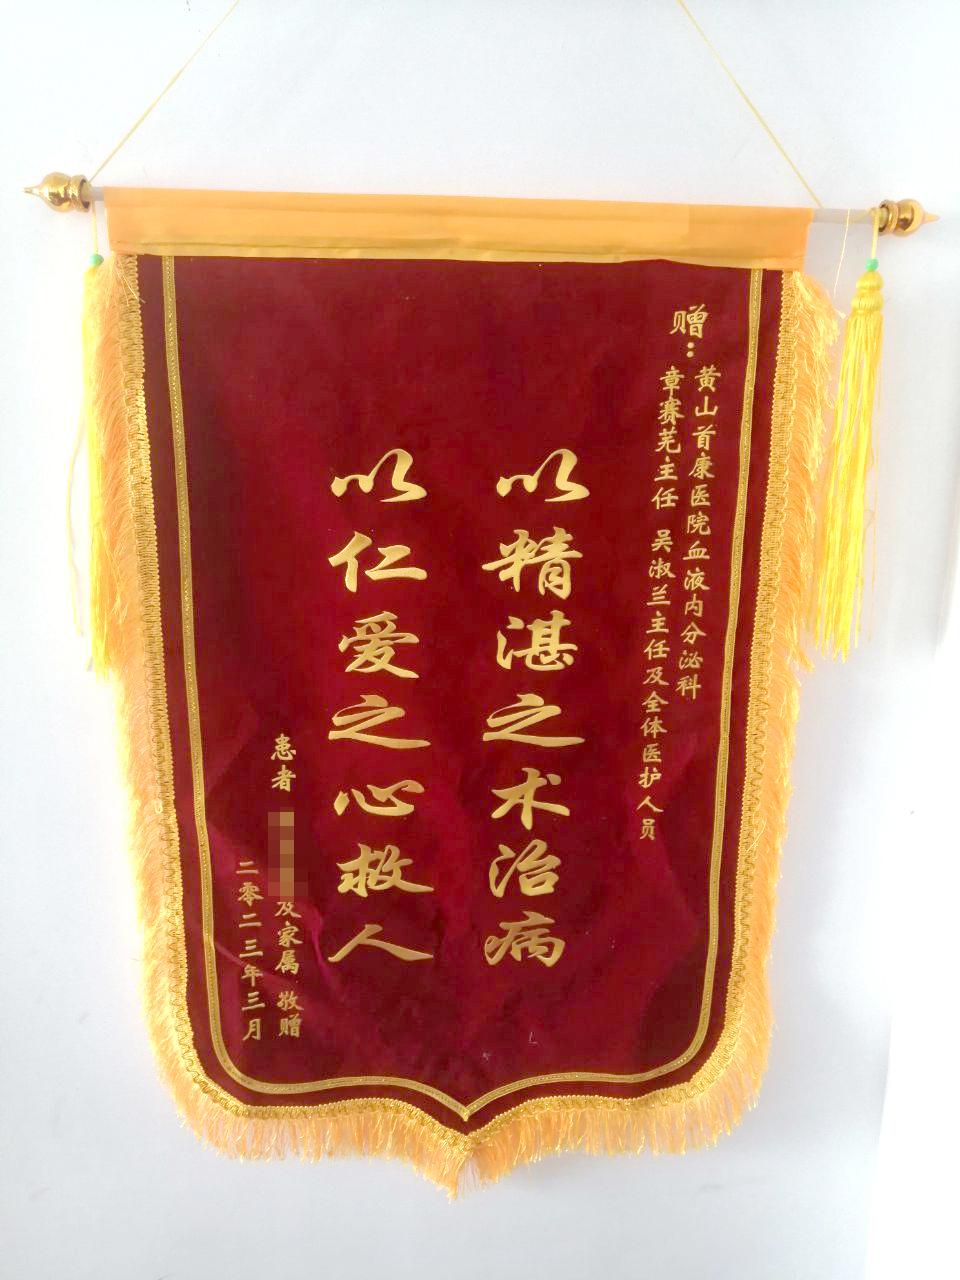 赠：
黄山首康医院血液内分泌科
章赛芜主任 吴淑兰主任及全体医护人员
以精湛之术治病
以仁爱之心救人
患者
及家属 敬赠
二零二三年三月